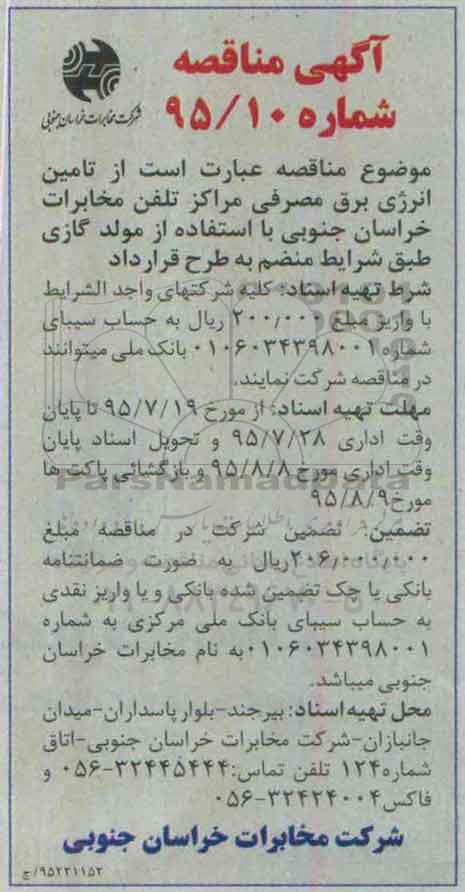 آگهی مناقصه
شماره ۹۵/۱۰
شرکت مخابرات خراسان جنوبی
موضوع مناقصه عبارت است از تامین
انرژی برق مصرفی مراکز تلفن مخابرات
خراسان جنوبی با استفاده از مولد گازی
طبق شرایط منضم به طرح قرارداد
شرط تهیه اسناد: کلیه شرکتهای واجد الشرایط
با واریز مبلغ ۲۰۰٫۰۰۰ ریال به حساب سیبای
شماره ۰۱۰۶۰۳۴۳۹۸۰۰۱ بانک ملی میتوانند
در مناقصه شرکت نمایند.
مهلت تهیه اسناد: از مورخ ۹۵/۷/۱۹ تا پایان
وقت اداری ۹۵/۷/۲۸ و تحویل اسناد پایان
وقت اداری مورخ ۹۵/۸/۸ و بازگشائی پاکت ها
مورخ ۹۵/۸/۹
ParsNamadData
تضمین: تضمین شرکت در مناقصه مبلغ
۲۰۶٫۰۰۰٫۰۰۰ ریال به صورت ضمانتنامه
بانکی یا چک تضمین شده بانکی و یا واریز نقدی
به حساب سیبای بانک ملی مرکزی به شماره
۰۱۰۶۰۳۴۳۹۸۰۰۱ به نام مخابرات خراسان
جنوبی میباشد.
محل تهیه اسناد: بیرجند-بلوار پاسداران-میدان
جانبازان-شرکت مخابرات خراسان جنوبی-اتاق
شماره ۱۲۴ تلفن تماس: ۳۲۴۴۵۴۴۴-۰۵۶ و
فاکس ۳۲۴۲۴۰۰۴-۰۵۶
شرکت مخابرات خراسان جنوبی
۹۵۲۲۱۱۵۲/خ